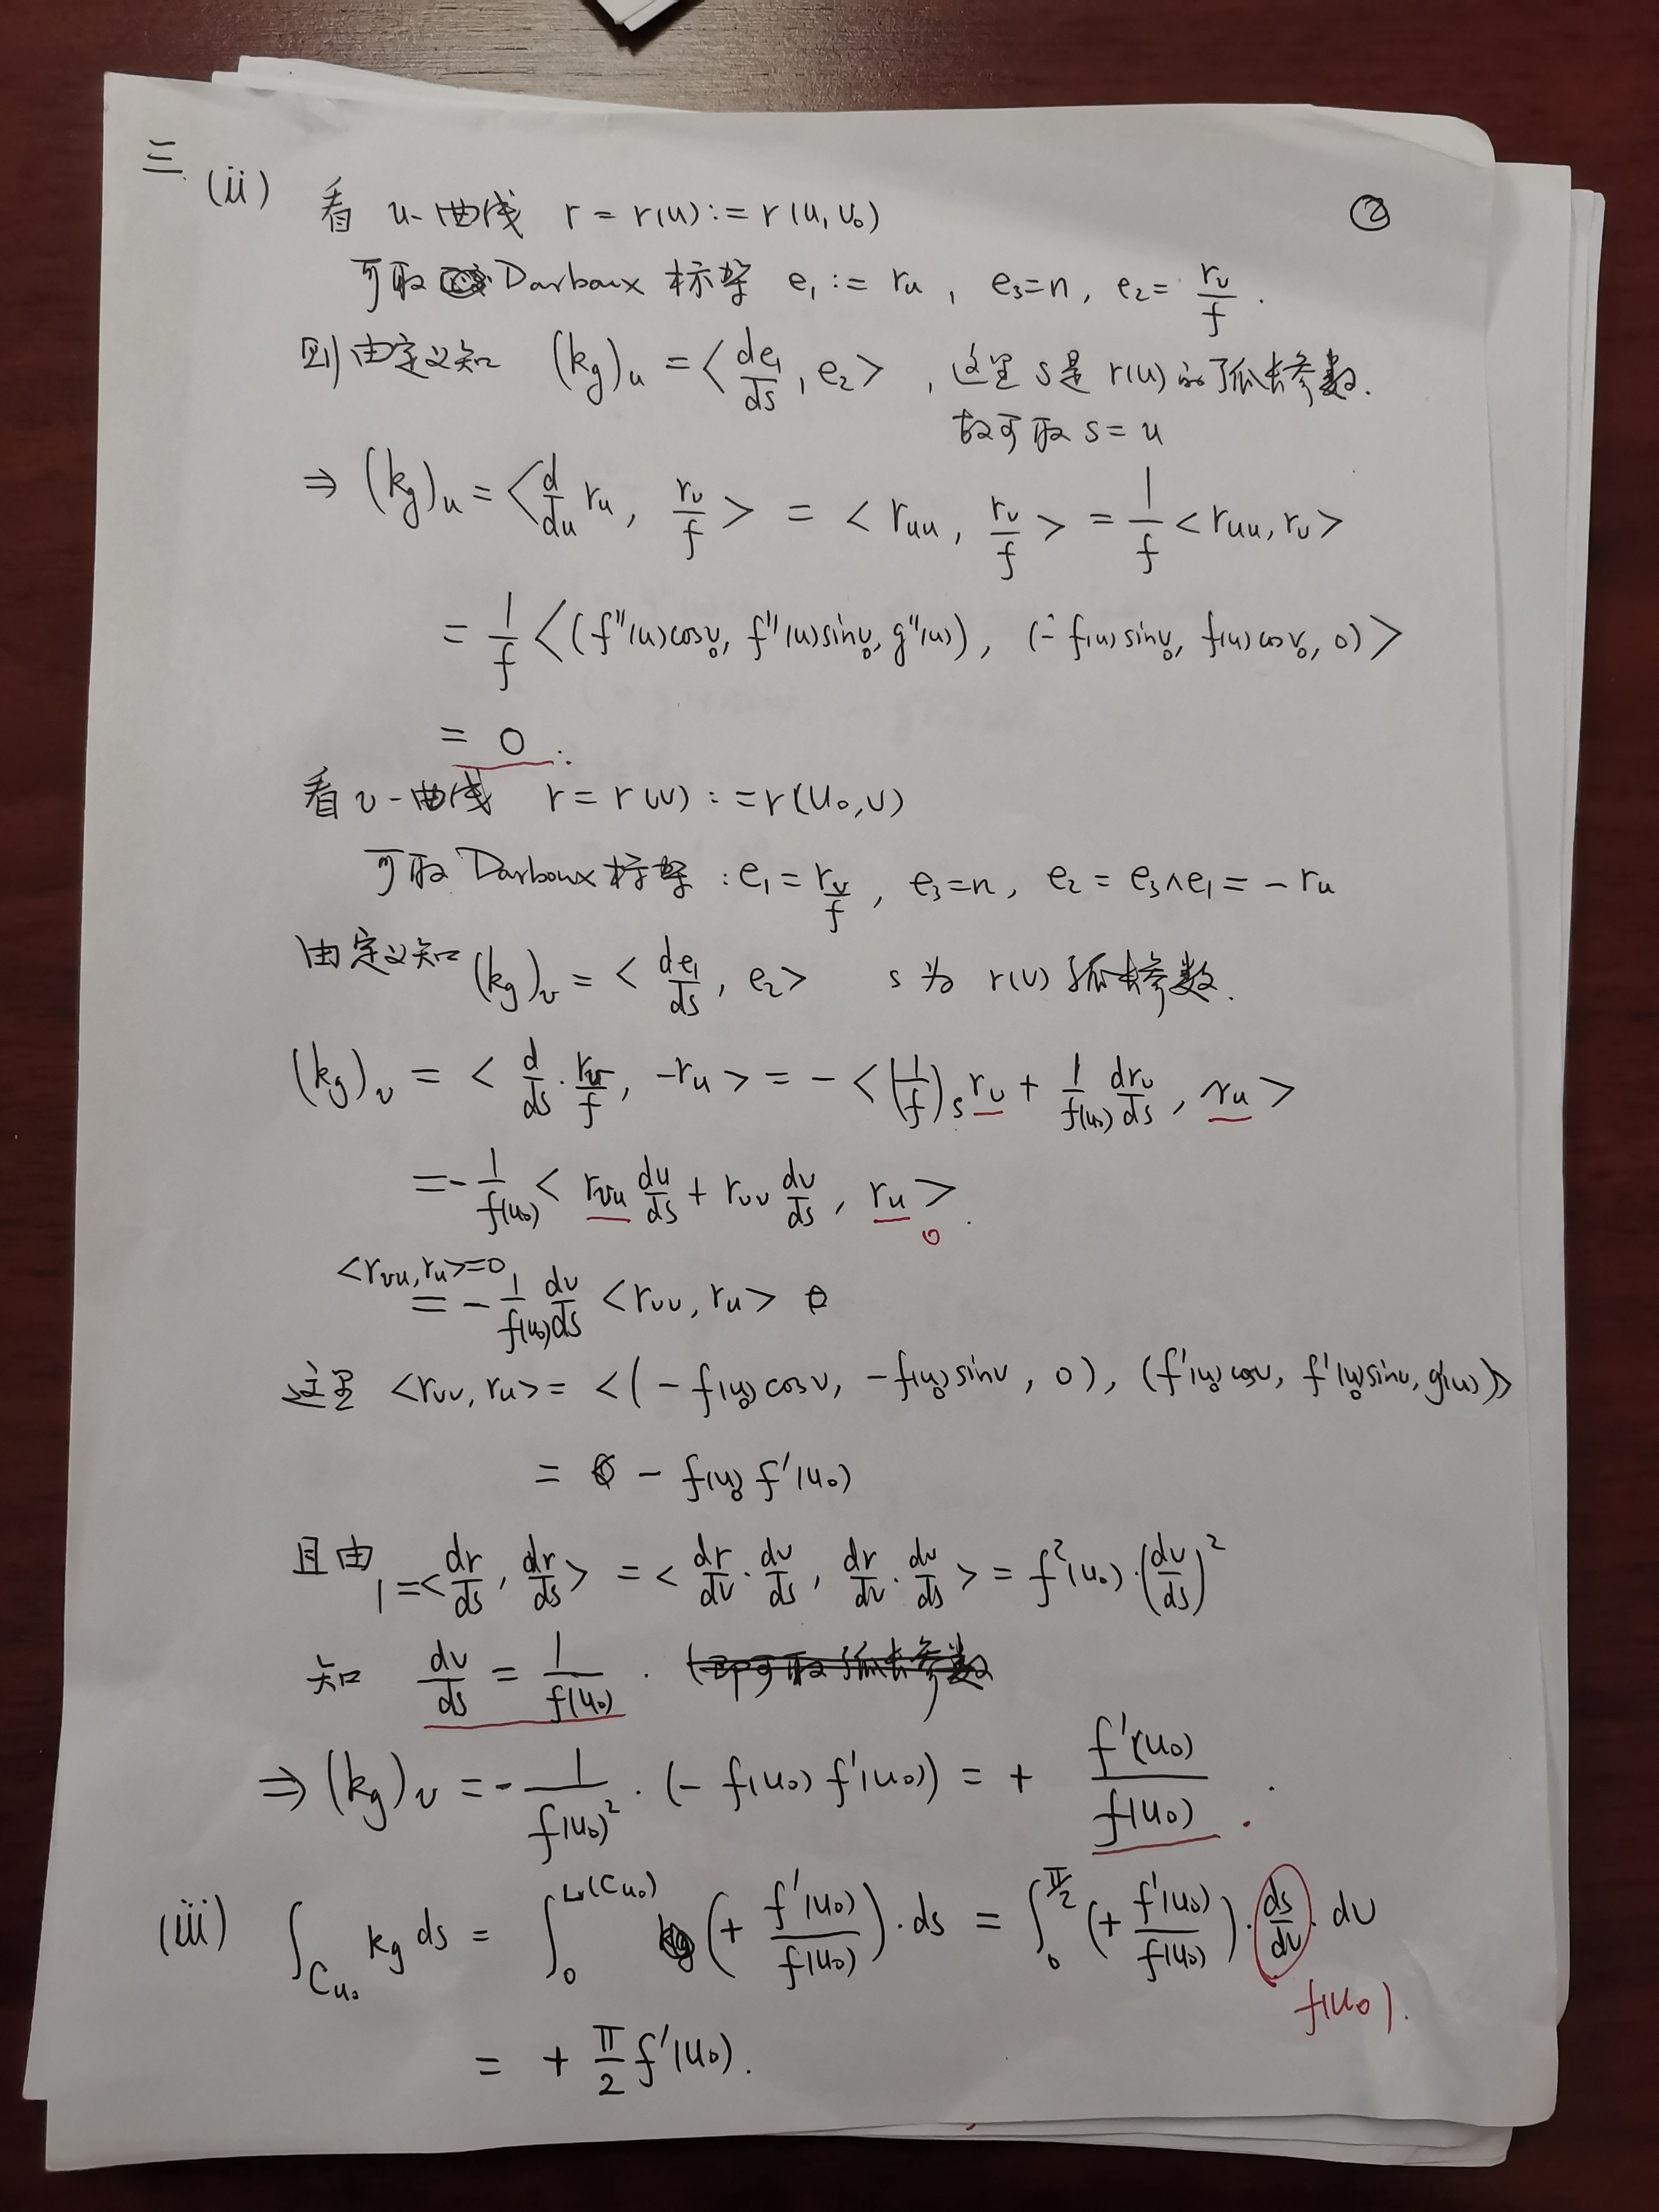 三 (ii) 看 u-曲线 r = r(u) := r(u, v₀) ②
可取 Darboux 标架 e₁ := rᵤ , e₃=n, e₂= r_v/f .
则由定义知 (kg)ᵤ = <de₁/ds, e₂> , 这里 s是 r(u) 的弧长参数.
故可取 s = u
⇒ (kg)ᵤ = <d/du rᵤ, r_v/f> = <rᵤᵤ, r_v/f> = 1/f <rᵤᵤ, r_v>
= 1/f <(f''(u)cosv₀, f''(u)sinv₀, g''(u)), (-f(u)sinv₀, f(u)cosv₀, 0)>
= 0.
看 v-曲线 r = r(v) := r(u₀, v)
可取 Darboux 标架 : e₁ = r_v/f , e₃=n, e₂ = e₃∧e₁ = -rᵤ
由定义知 (kg)_v = <de₁/ds, e₂> s 为 r(v) 弧长参数.
(kg)_v = <d/ds · r_v/f, -rᵤ> = -<(1/f)_s r_v + 1/f(u₀) dr_v/ds, rᵤ>
= -1/f(u₀) <r_vu du/ds + r_vv dv/ds, rᵤ> .
0
<r_vu, rᵤ>=0
= -1/f(u₀) dv/ds <r_vv, rᵤ>
这里 <r_vv, rᵤ> = <(-f(u₀)cosv, -f(u₀)sinv, 0), (f'(u₀)cosv, f'(u₀)sinv, g'(u₀))>
= - f(u₀) f'(u₀)
且由 1=<dr/ds, dr/ds> = <dr/dv · dv/ds, dr/dv · dv/ds> = f²(u₀)·(dv/ds)²
知 dv/ds = 1/f(u₀) . (即可取弧长参数
⇒ (kg)_v = -1/f(u₀)² · (-f(u₀) f'(u₀)) = + f'(u₀)/f(u₀) .
(iii) ∫_{C_{u₀}} kg ds = ∫₀^{L(C_{u₀})} (+ f'(u₀)/f(u₀)) · ds = ∫₀^{π/2} (+ f'(u₀)/f(u₀)) · ds/dv · dv
f(u₀).
= + π/2 f'(u₀).